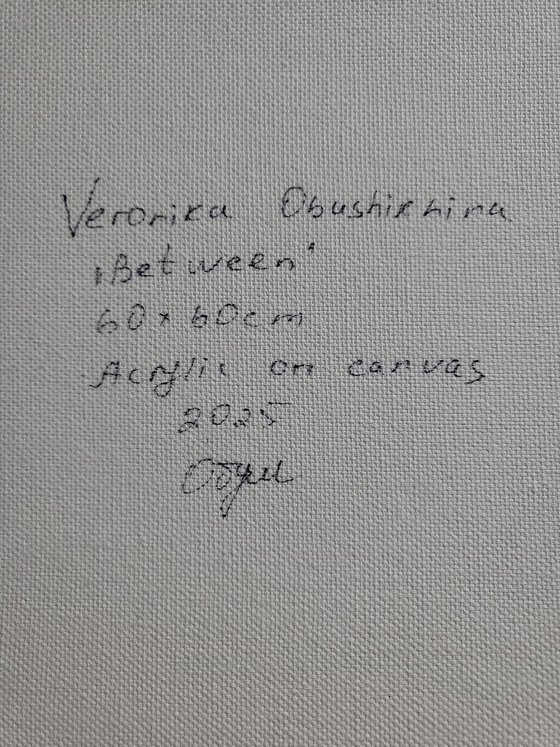 Veronika Obushikhina
"Between"
60 x 60 cm
Acrylic on canvas
2025